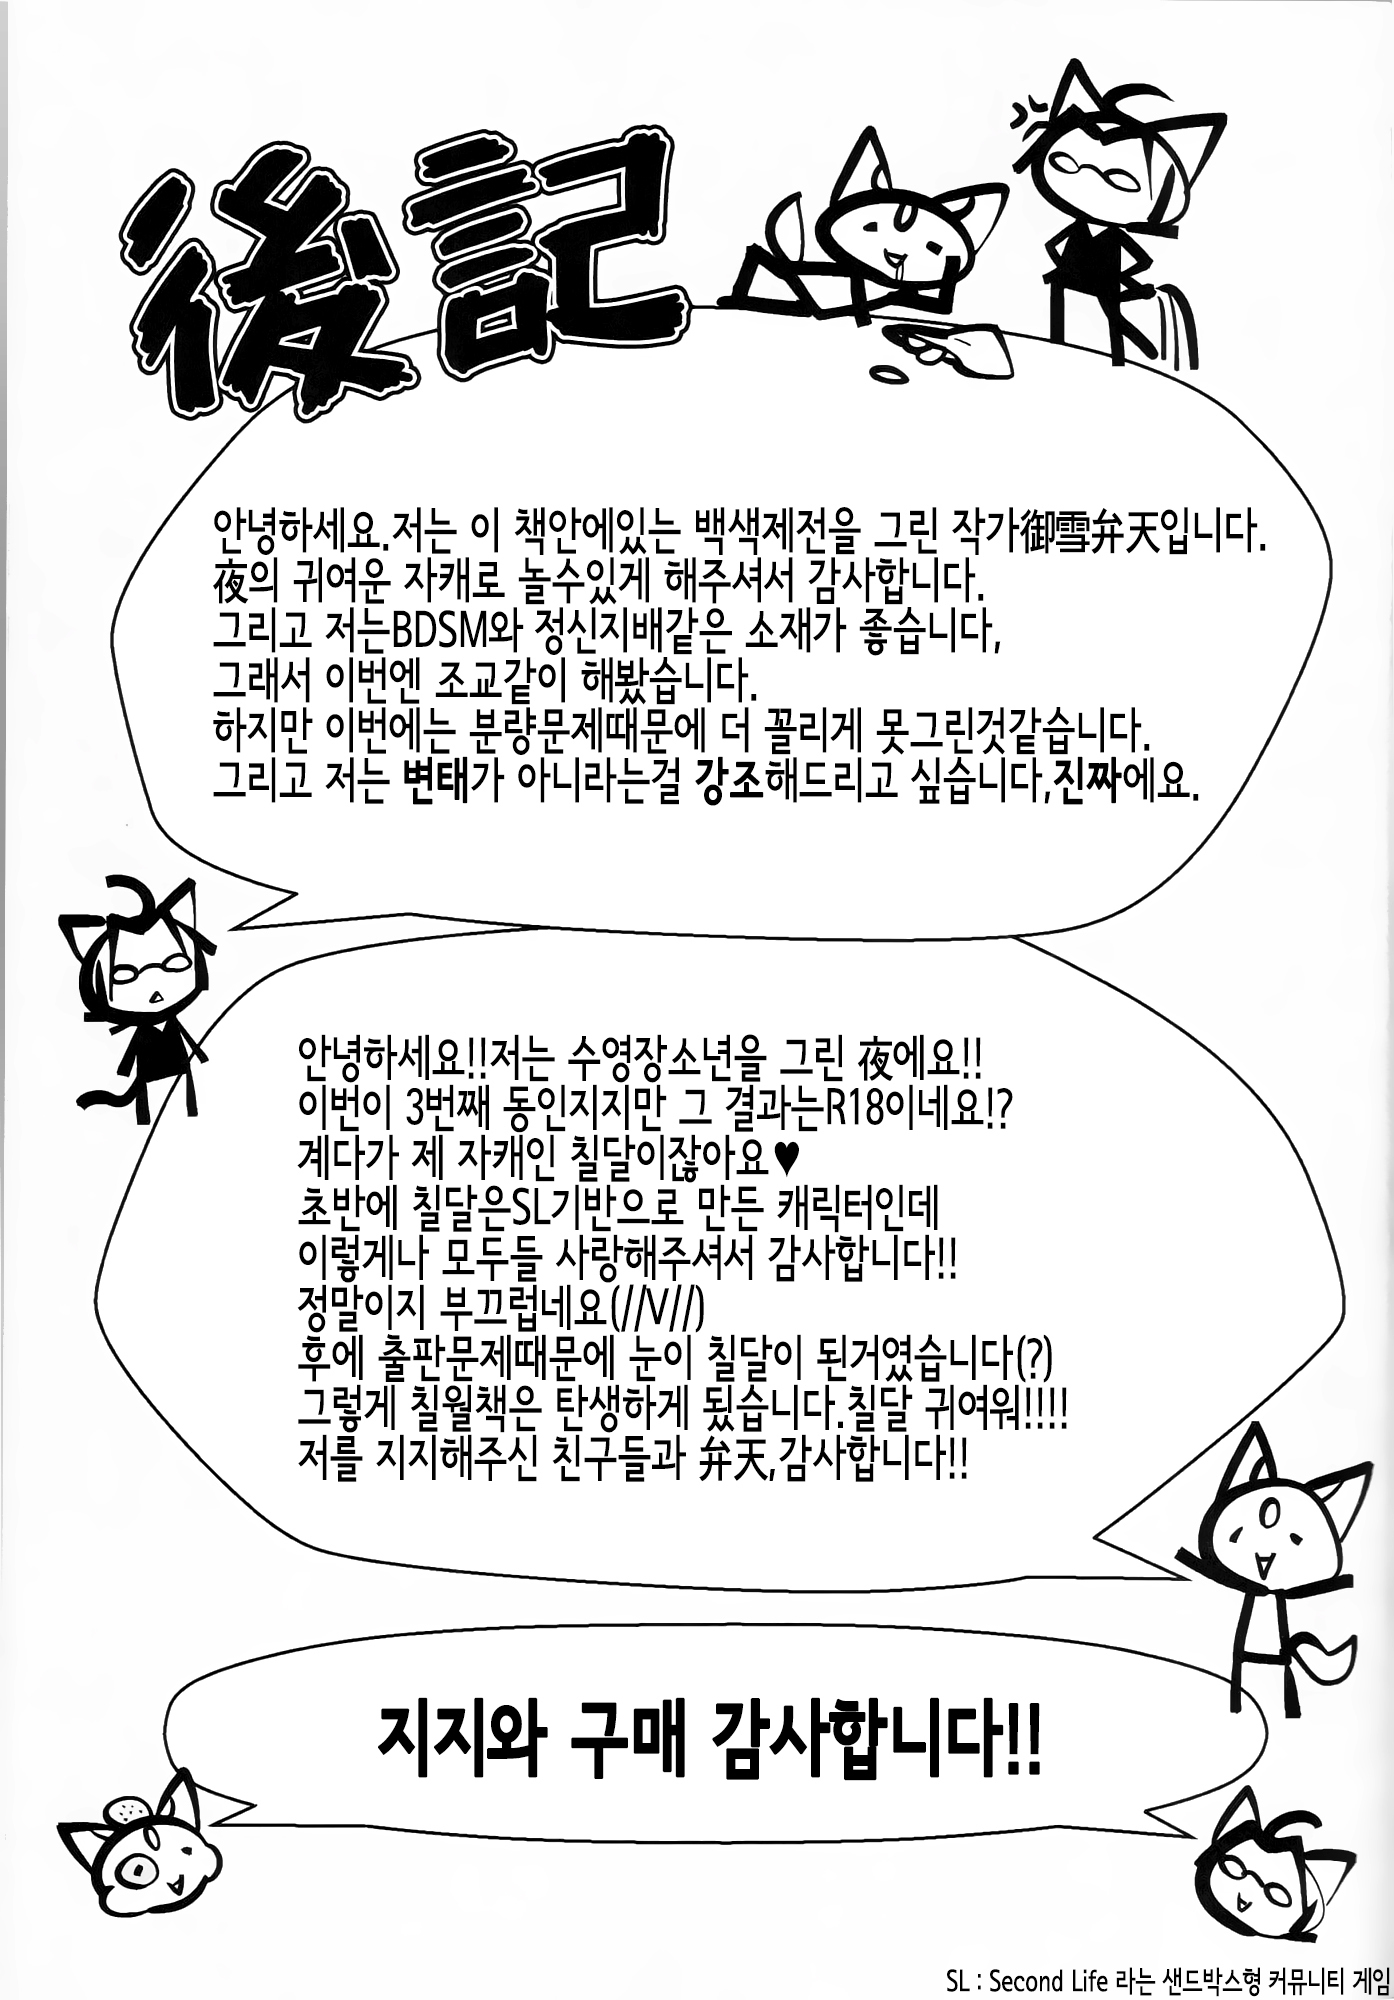 後記
안녕하세요.저는 이 책안에있는 백색제전을 그린 작가御雪弁天입니다.
夜의 귀여운 자캐로 놀수있게 해주셔서 감사합니다.
그리고 저는BDSM와 정신지배같은 소재가 좋습니다,
그래서 이번엔 조교같이 해봤습니다.
하지만 이번에는 분량문제때문에 더 꼴리게 못그린것같습니다.
그리고 저는 변태가 아니라는걸 강조해드리고 싶습니다,진짜에요.
안녕하세요!!저는 수영장소년을 그린 夜에요!!
이번이 3번째 동인지지만 그 결과는R18이네요!?
계다가 제 자캐인 칠달이잖아요♥
초반에 칠달은SL기반으로 만든 캐릭터인데
이렇게나 모두들 사랑해주셔서 감사합니다!!
정말이지 부끄럽네요(//V//)
후에 출판문제때문에 눈이 칠달이 된거였습니다(?)
그렇게 칠월책은 탄생하게 됬습니다.칠달 귀여워!!!!
저를 지지해주신 친구들과 弁天,감사합니다!!
지지와 구매 감사합니다!!
SL : Second Life 라는 샌드박스형 커뮤니티 게임